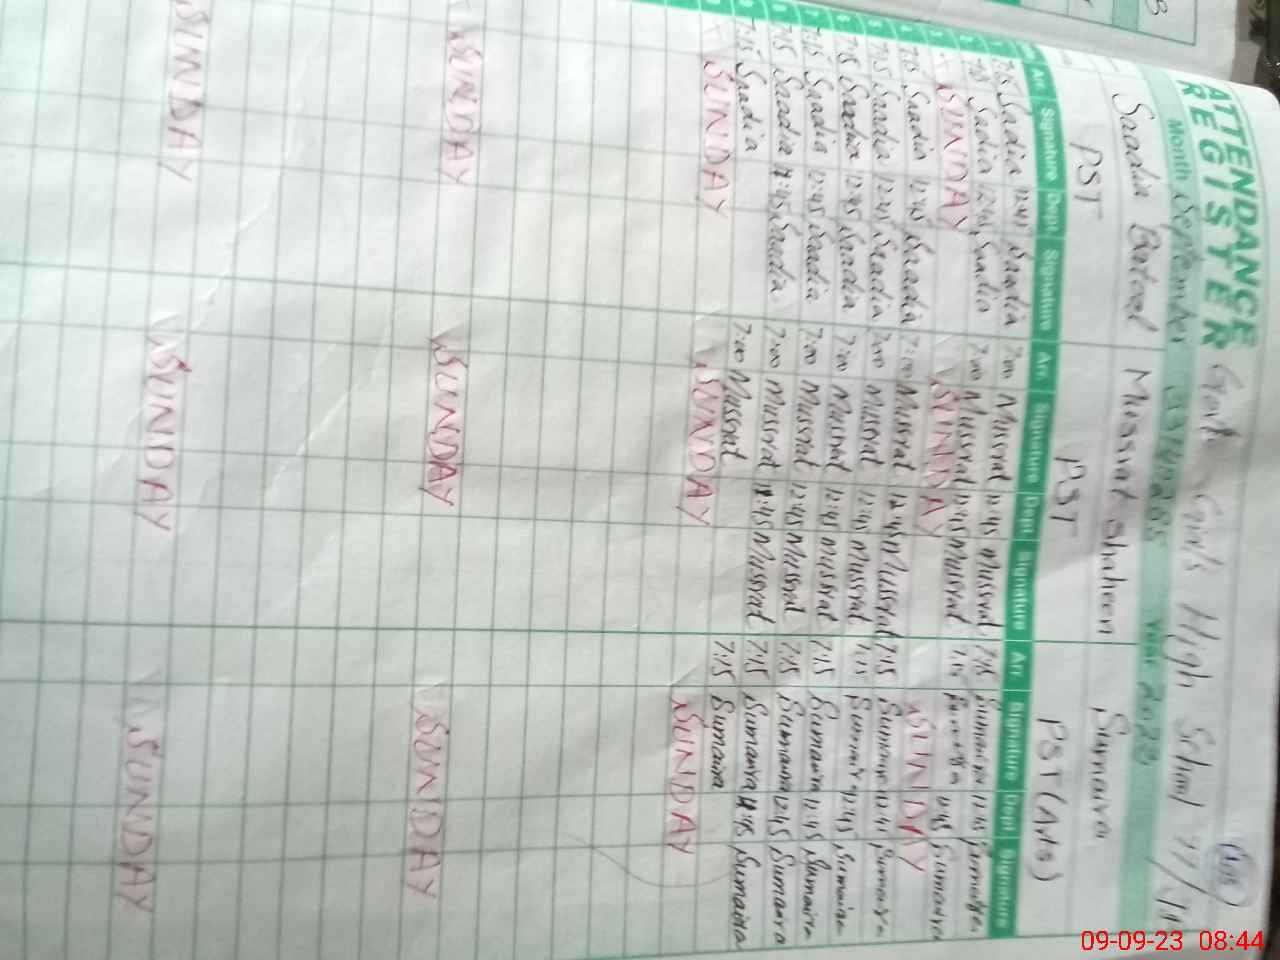 ATTENDANCE
REGISTER Govt Girls High School
Month September Year 2023
Saadia Batool Mussrat Shaheen Sumaira
PST PST PST (Arts)
Arr. Signature Dept Signature Arr. Signature Dept Signature Arr. Signature Dept Signature
1 7:15 Saadia 12:45 Saadia 7:00 Mussrat 12:45 Mussrat 7:15 Sumaira 12:45
2 7:15 Sadia 12:45 Saadia 7:00 Mussrat 12:45 Mussrat 7:15 12:45 Sumaira
3 SUNDAY SUNDAY SUNDAY
4 7:15 Saadia 12:45 Saadia 7:00 Mussrat 12:45 Mussrat 7:15 Sumaira 12:45 Sumaira
5 7:15 Saadia 12:45 Saadia 7:00 Mussrat 12:45 Mussrat 7:15 Sumaira 12:45 Sumaira
6 7:15 Saadia 12:45 Saadia 7:00 Mussrat 12:45 Mussrat 7:15 Sumaira 12:45 Sumaira
7 7:15 Saadia 12:45 Saadia 7:00 Mussrat 12:45 Mussrat 7:15 Sumaira 12:45 Sumaira
8 7:15 Saadia :45 Saadia 7:00 Mussrat :45 Mussrat 7:15 Sumaira :45 Sumaira
9 7:15 Saadia 7:00 Mussrat 7:15 Sumaira
SUNDAY SUNDAY SUNDAY
SUNDAY SUNDAY SUNDAY
SUNDAY SUNDAY SUNDAY
09-09-23 08:44